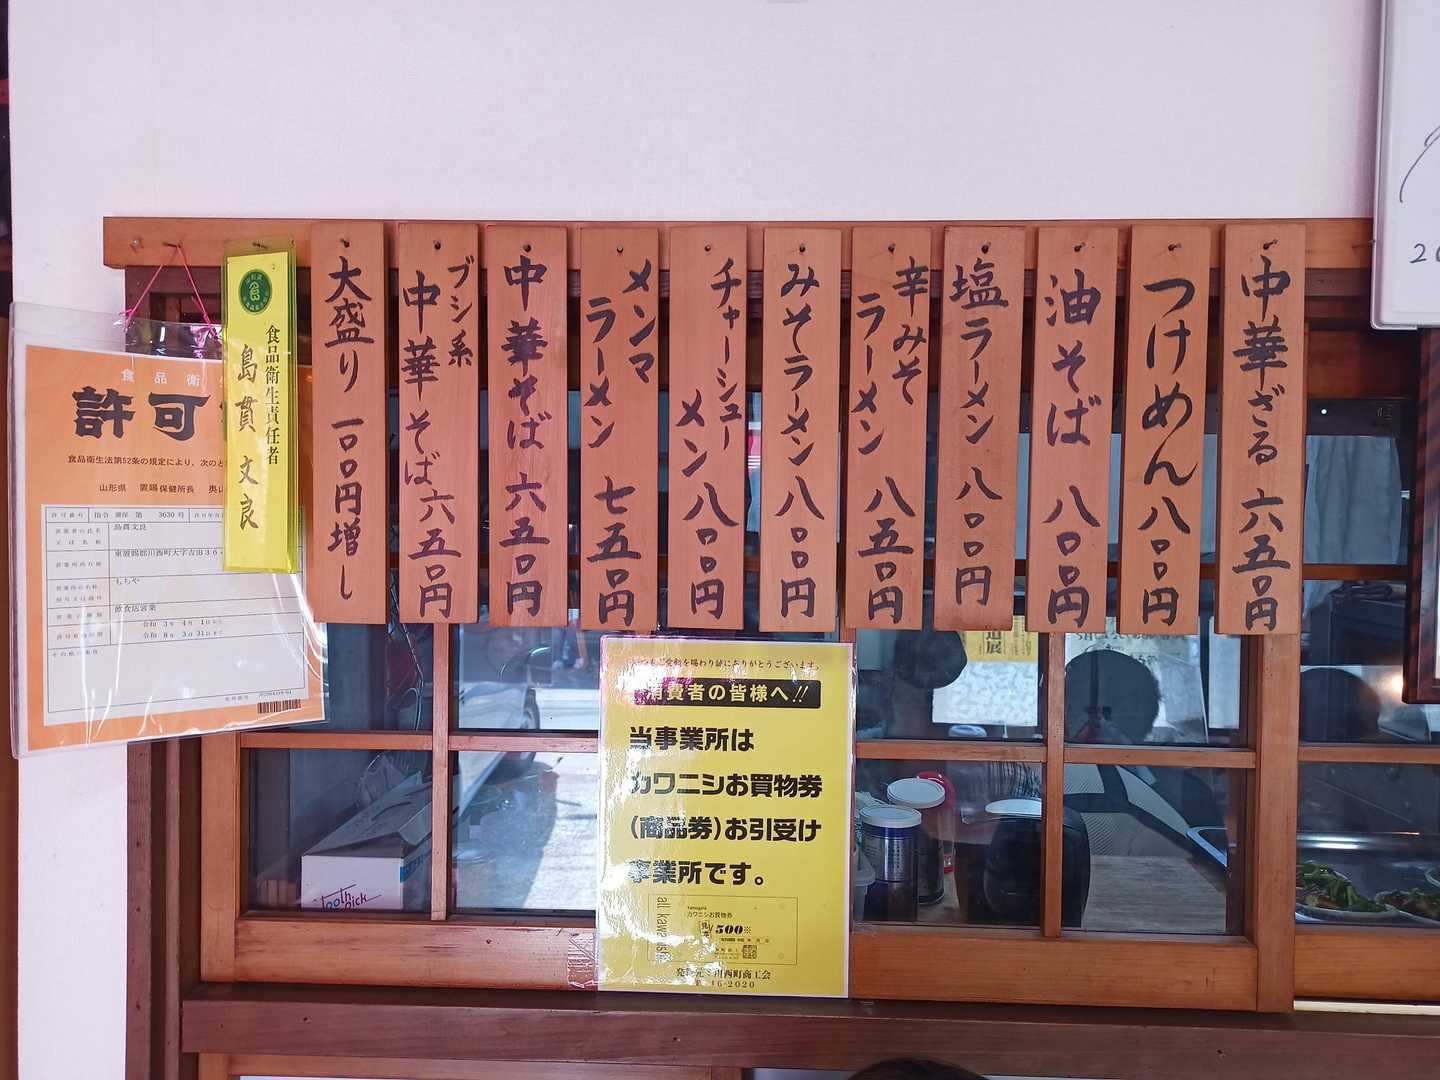 大盛り 一〇〇円増し
ブシ系
中華そば 六五〇円
中華そば 六五〇円
メンマ
ラーメン 七五〇円
チャーシュー
メン 八〇〇円
みそラーメン 八〇〇円
辛みそ
ラーメン 八五〇円
塩ラーメン 八〇〇円
油そば 八〇〇円
つけめん 八〇〇円
中華ざる 六五〇円
食品衛生責任者
島貫 文良
食品衛生
許可
食品衛生法第52条の規定により、次のと
山形県 置賜保健所長 奥山
許可番号 指令 置保 第 3630 号
島貫文良
東置賜郡川西町大字吉田36
もちや
飲食店営業
令和 3年 4月 1日から
令和 8年 3月31日まで
その他の条件
ご愛顧を賜わり誠にありがとうございます。
消費者の皆様へ!!
当事業所は
カワニシお買物券
(商品券)お引受け
事業所です。
カワニシお買物券
500
発行元:川西町商工会
46-2020
tooth
pick
20